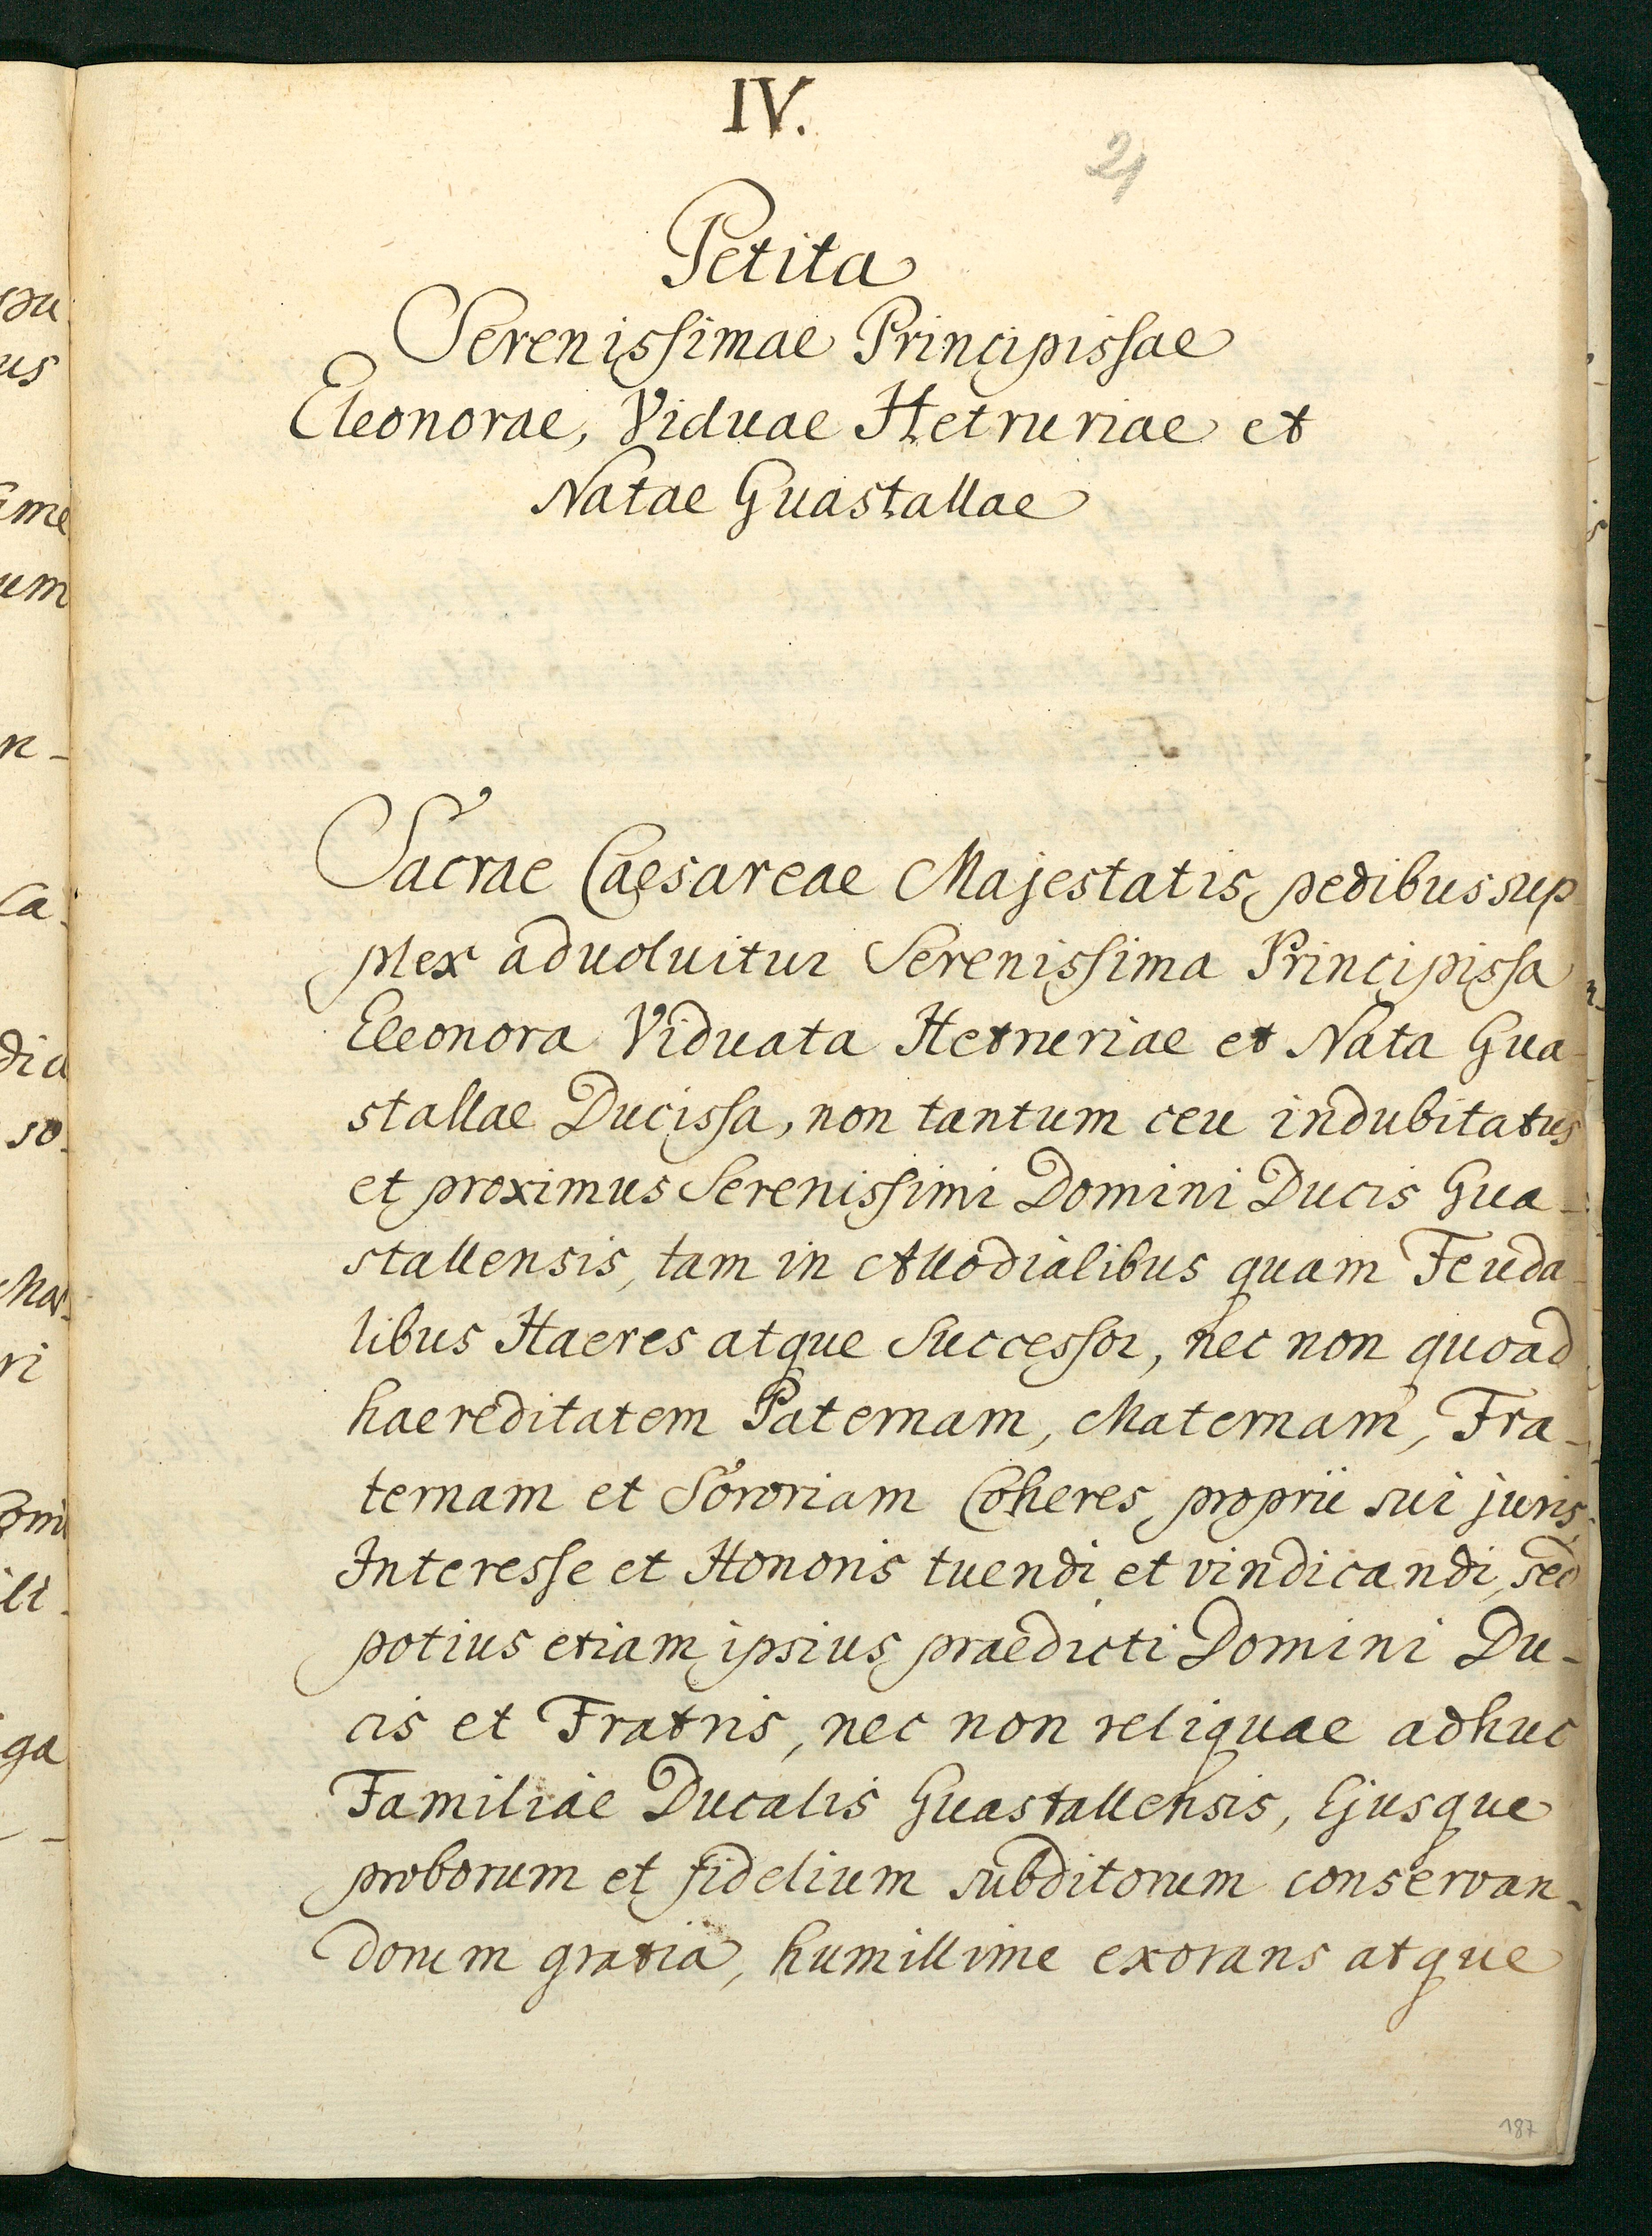 IV.
21
Petita
Serenissimae Principissae
Eleonorae, Viduae Hetruriae et
Natae Guastallae
Sacrae Caesareae Majestatis pedibus sup
plex aduoluitur Serenissima Principissa
Eleonora Viduata Hetruriae et Nata Gua-
stallae Ducissa, non tantum ceu indubitatus
et proximus Serenissimi Domini Ducis Gua-
stallensis, tam in Allodialibus quam Feuda-
libus Haeres atque Successor, nec non quoad
haereditatem Paternam, Maternam, Fra-
ternam et Sororiam Coheres proprii sui juris,
Interesse et Honoris tuendi et vindicandi, sed
potius etiam ipsius praedicti Domini Du-
cis et Fratris, nec non reliquae adhuc
Familiae Ducalis Guastallensis, Ejusque
proborum et fidelium subditorum conservan-
dorum gratia, humillime exorans atque
187